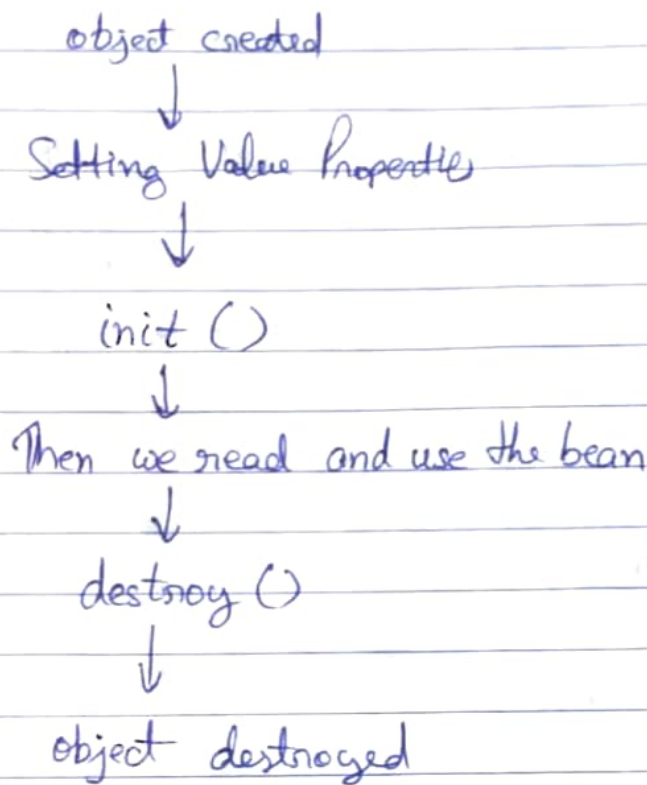 object created
Setting Value Properties
init ()
Then we read and use the bean
destroy ()
object destroyed